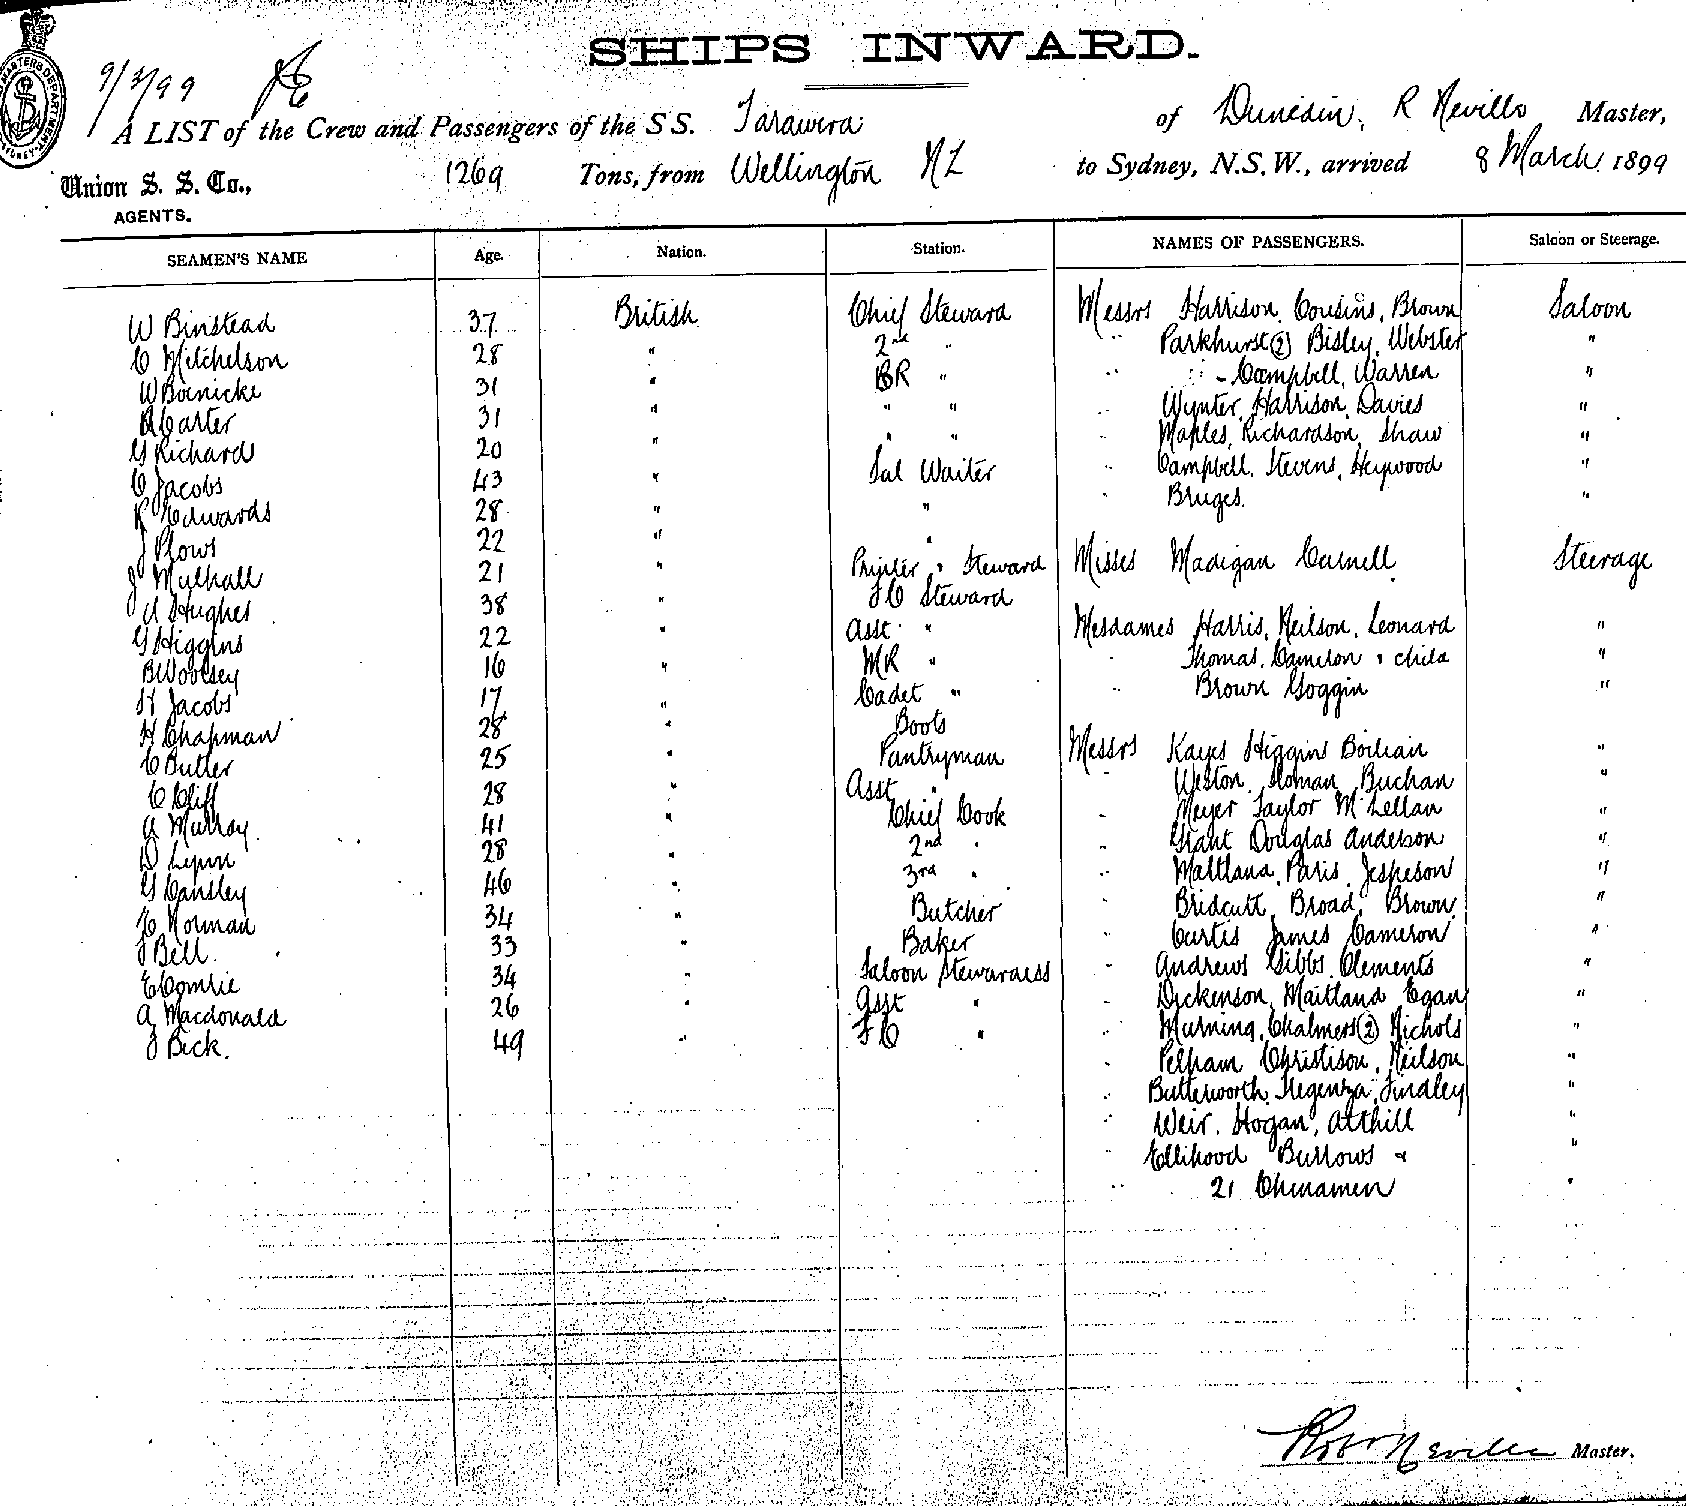 SHIPS INWARD.
9/3/99
A LIST of the Crew and Passengers of the S S. Tarawera of Dunedin, R Neville Master,
Union S. S. Co., 1269 Tons, from Wellington NZ to Sydney, N.S.W., arrived 8 March 1899
AGENTS.
SEAMEN'S NAME Age. Nation. Station. NAMES OF PASSENGERS. Saloon or Steerage.
W Binstead 37 British Chief Steward Messrs Harrison, Cousins, Brown Saloon
C Mitchelson 28 " 2nd " Parkhurst (2) Bisley, Webster "
W Boinicke 31 " BR " " Campbell, Warren "
R Carter 31 " " " " Wynter, Harrison, Davies "
G Richard 20 " " " " Maples, Richardson, Shaw "
C Jacobs 43 " Sal Waiter " Campbell, Stevens, Heywood "
R Edwards 28 " " " Bruges. "
J Plows 22 " "
J Mulhall 21 " Printer & Steward Misses Madigan Carnell Steerage
A Hughes 38 " FC Steward
G Higgins 22 " Asst " Mesdames Harris, Neilson, Leonard "
B Woolsey 16 " MR " " Thomas, Cameron & child "
H Jacobs 17 " Cadet " " Brown Goggin "
H Chapman 28 " Boots
C Butler 25 " Pantryman Messrs Kayes Higgins "
C Cliff 28 " Asst " " Weston, Homan, Buchan "
A Murray. 41 " Chief Cook " Meyer Taylor McLellan "
D Lynn 28 " 2nd " " Grant Douglas Anderson "
G Cansley 46 " 3rd " " Maitland, Paris, Jespeson "
C Norman 34 " Butcher " Bridcutt, Broad, Brown "
J Bell. 33 " Baker " Curtis James Cameron "
E Comrie 34 " Saloon Stewardess " Andrews Gibbs Clements "
A Macdonald 26 " Asst " " Dickenson, Maitland Egan "
J Beck. 49 " FC " " Murning, Chalmers (2) Nichols "
" Pelham Christison, Neilson "
" Butterworth, Tregenza, Findley "
" Weir, Hogan, Atthill "
" Ellihood Burrows & "
" 21 Chinamen "
Robt Neville Master.